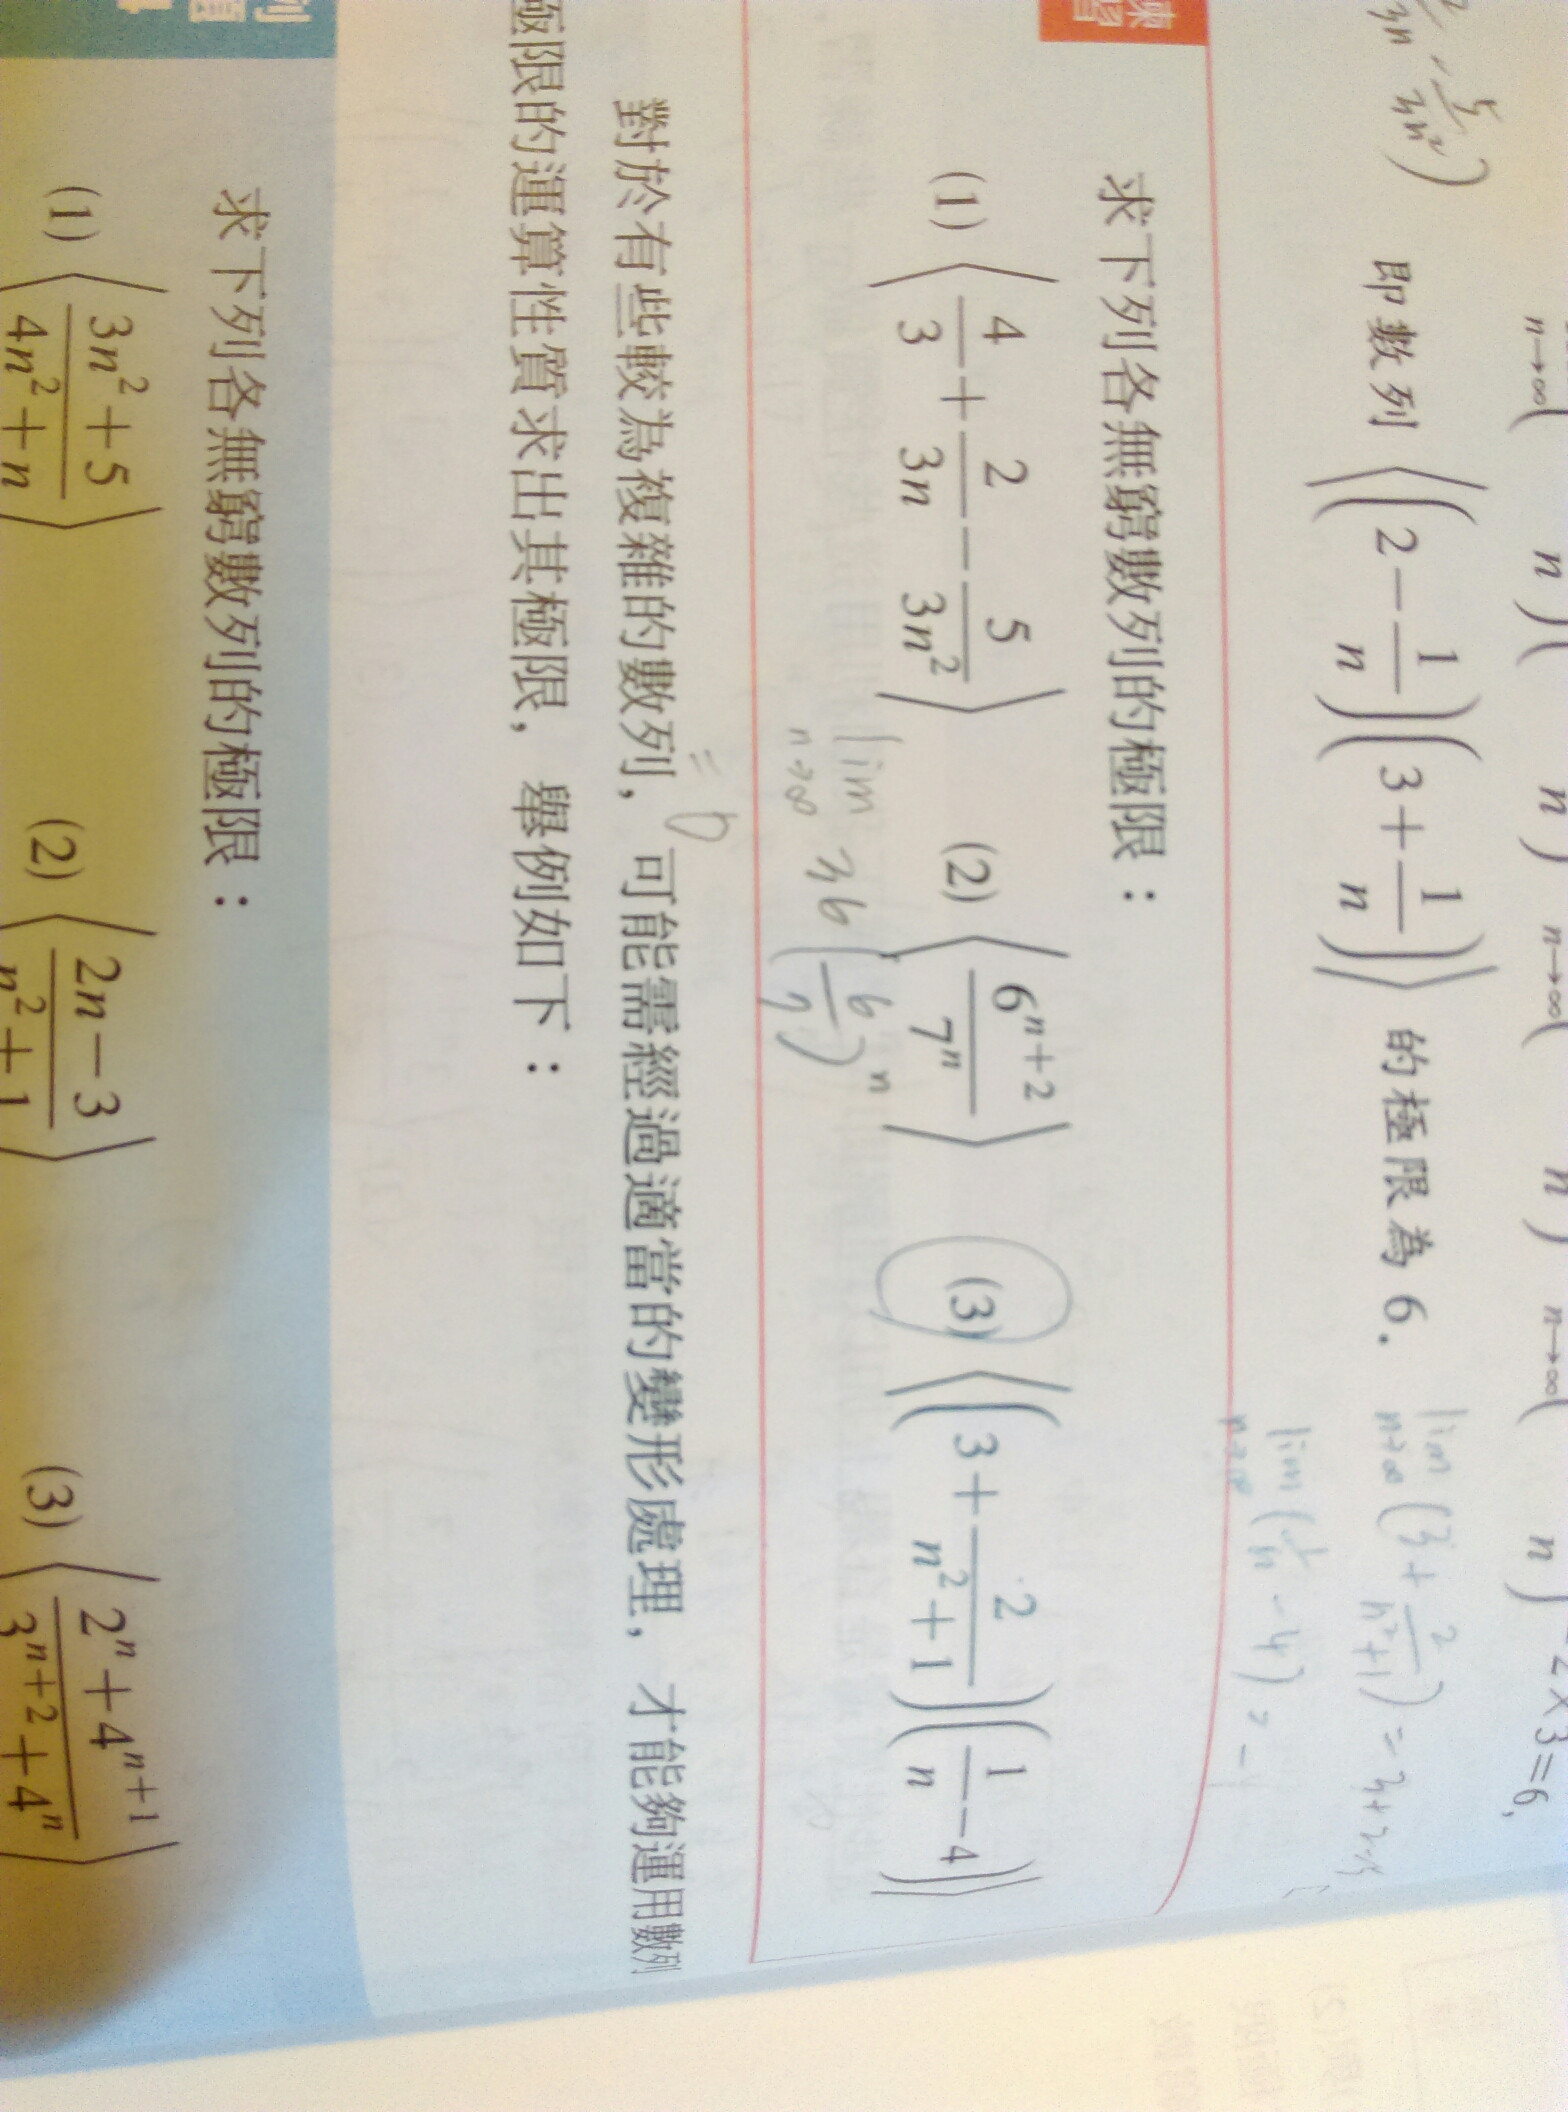 n→∞( n )( n ) n→∞( n ) n→∞( n ) 2×3=6,
即數列⟨(2−1/n)(3+1/n)⟩的極限為 6.
lim n→∞ (3+2/(n²+1)) = 3+
lim n→∞ (1/n −4) =
練習
求下列各無窮數列的極限：
(1)⟨4/3+2/3n−5/3n²⟩ (2)⟨6ⁿ⁺²/7ⁿ⟩ (3)⟨(3+2/(n²+1))(1/n−4)⟩
lim n→∞ 36(6/7)ⁿ
對於有些較為複雜的數列，可能需經過適當的變形處理，才能夠運用數列
極限的運算性質求出其極限，舉例如下：
求下列各無窮數列的極限：
(1)⟨(3n²+5)/(4n²+n)⟩ (2)⟨(2n−3)/(n²+1)⟩ (3)⟨(2ⁿ+4ⁿ⁺¹)/(3ⁿ⁺²+4ⁿ)⟩